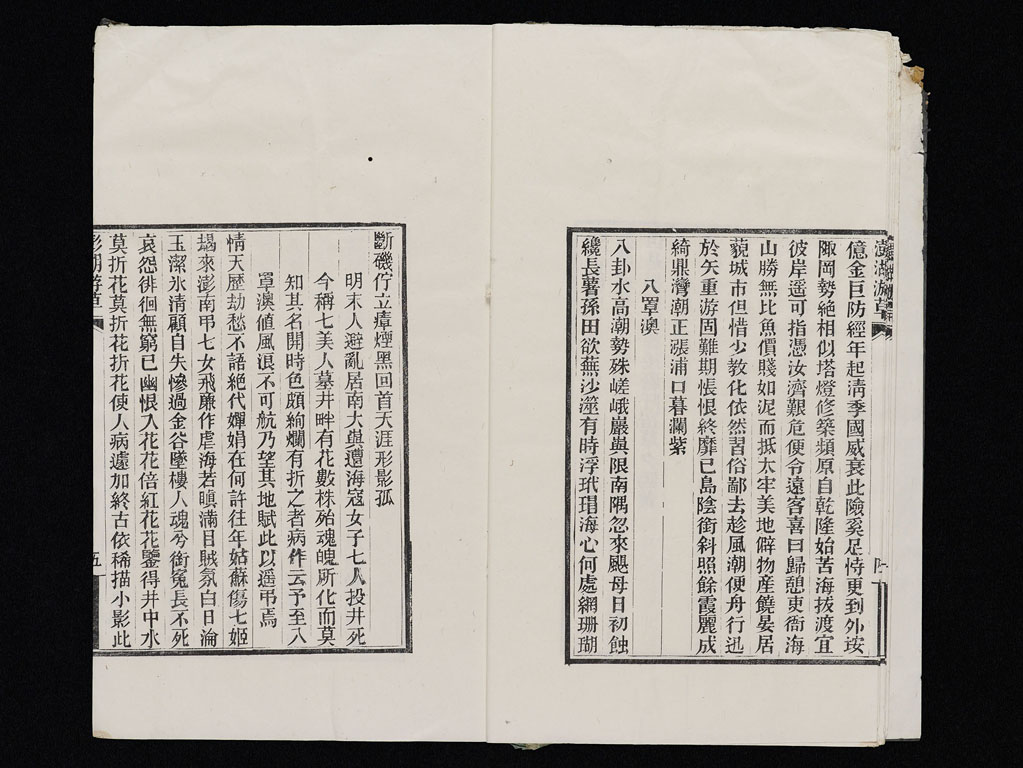 澎湖游草
億金巨防經年起淸季國威衰此險奚足恃更到外垵
陬岡勢絕相似塔燈修築頻原自乾隆始苦海拔渡宜
彼岸遥可指憑汝濟艱危便令遠客喜曰歸憩東衙海
山勝無比魚價賤如泥而抵太牢美地僻物產饒晏居
藐城市但惜少敎化依然習俗鄙去趁風潮便舟行迅
於矢重游固難期悵恨終靡已島陰銜斜照餘霞麗成
綺鼎灣潮正漲浦口暮瀾紫
八罩澳
八卦水高潮勢殊嵯峨巖與限南隅忽來颶母日初蝕
纔長薯孫田欲蕪沙澨有時浮玳瑁海心何處網珊瑚
斷磯佇立瘴煙黑回首天涯形影孤
明末人避亂居南大與遭海寇女子七人投井死
今稱七美人墓井畔有花數株殆魂魄所化而莫
知其名開時色頗絢爛有折之者病作云予至八
罩澳値風浪不可航乃望其地賦此以遥弔焉
情天歷劫愁不語絕代嬋娟在何許往年姑蘇傷七姬
朅來澎南弔七女飛廉作虐海若瞋滿目賊氛白日淪
玉潔氷淸顧自失慘過金谷墜樓人魂兮銜冤長不死
哀怨徘徊無窮已幽恨入花花倍紅花花鑒得井中水
莫折花莫折花折花使人病遽加終古依稀描小影此
澎湖游草
五